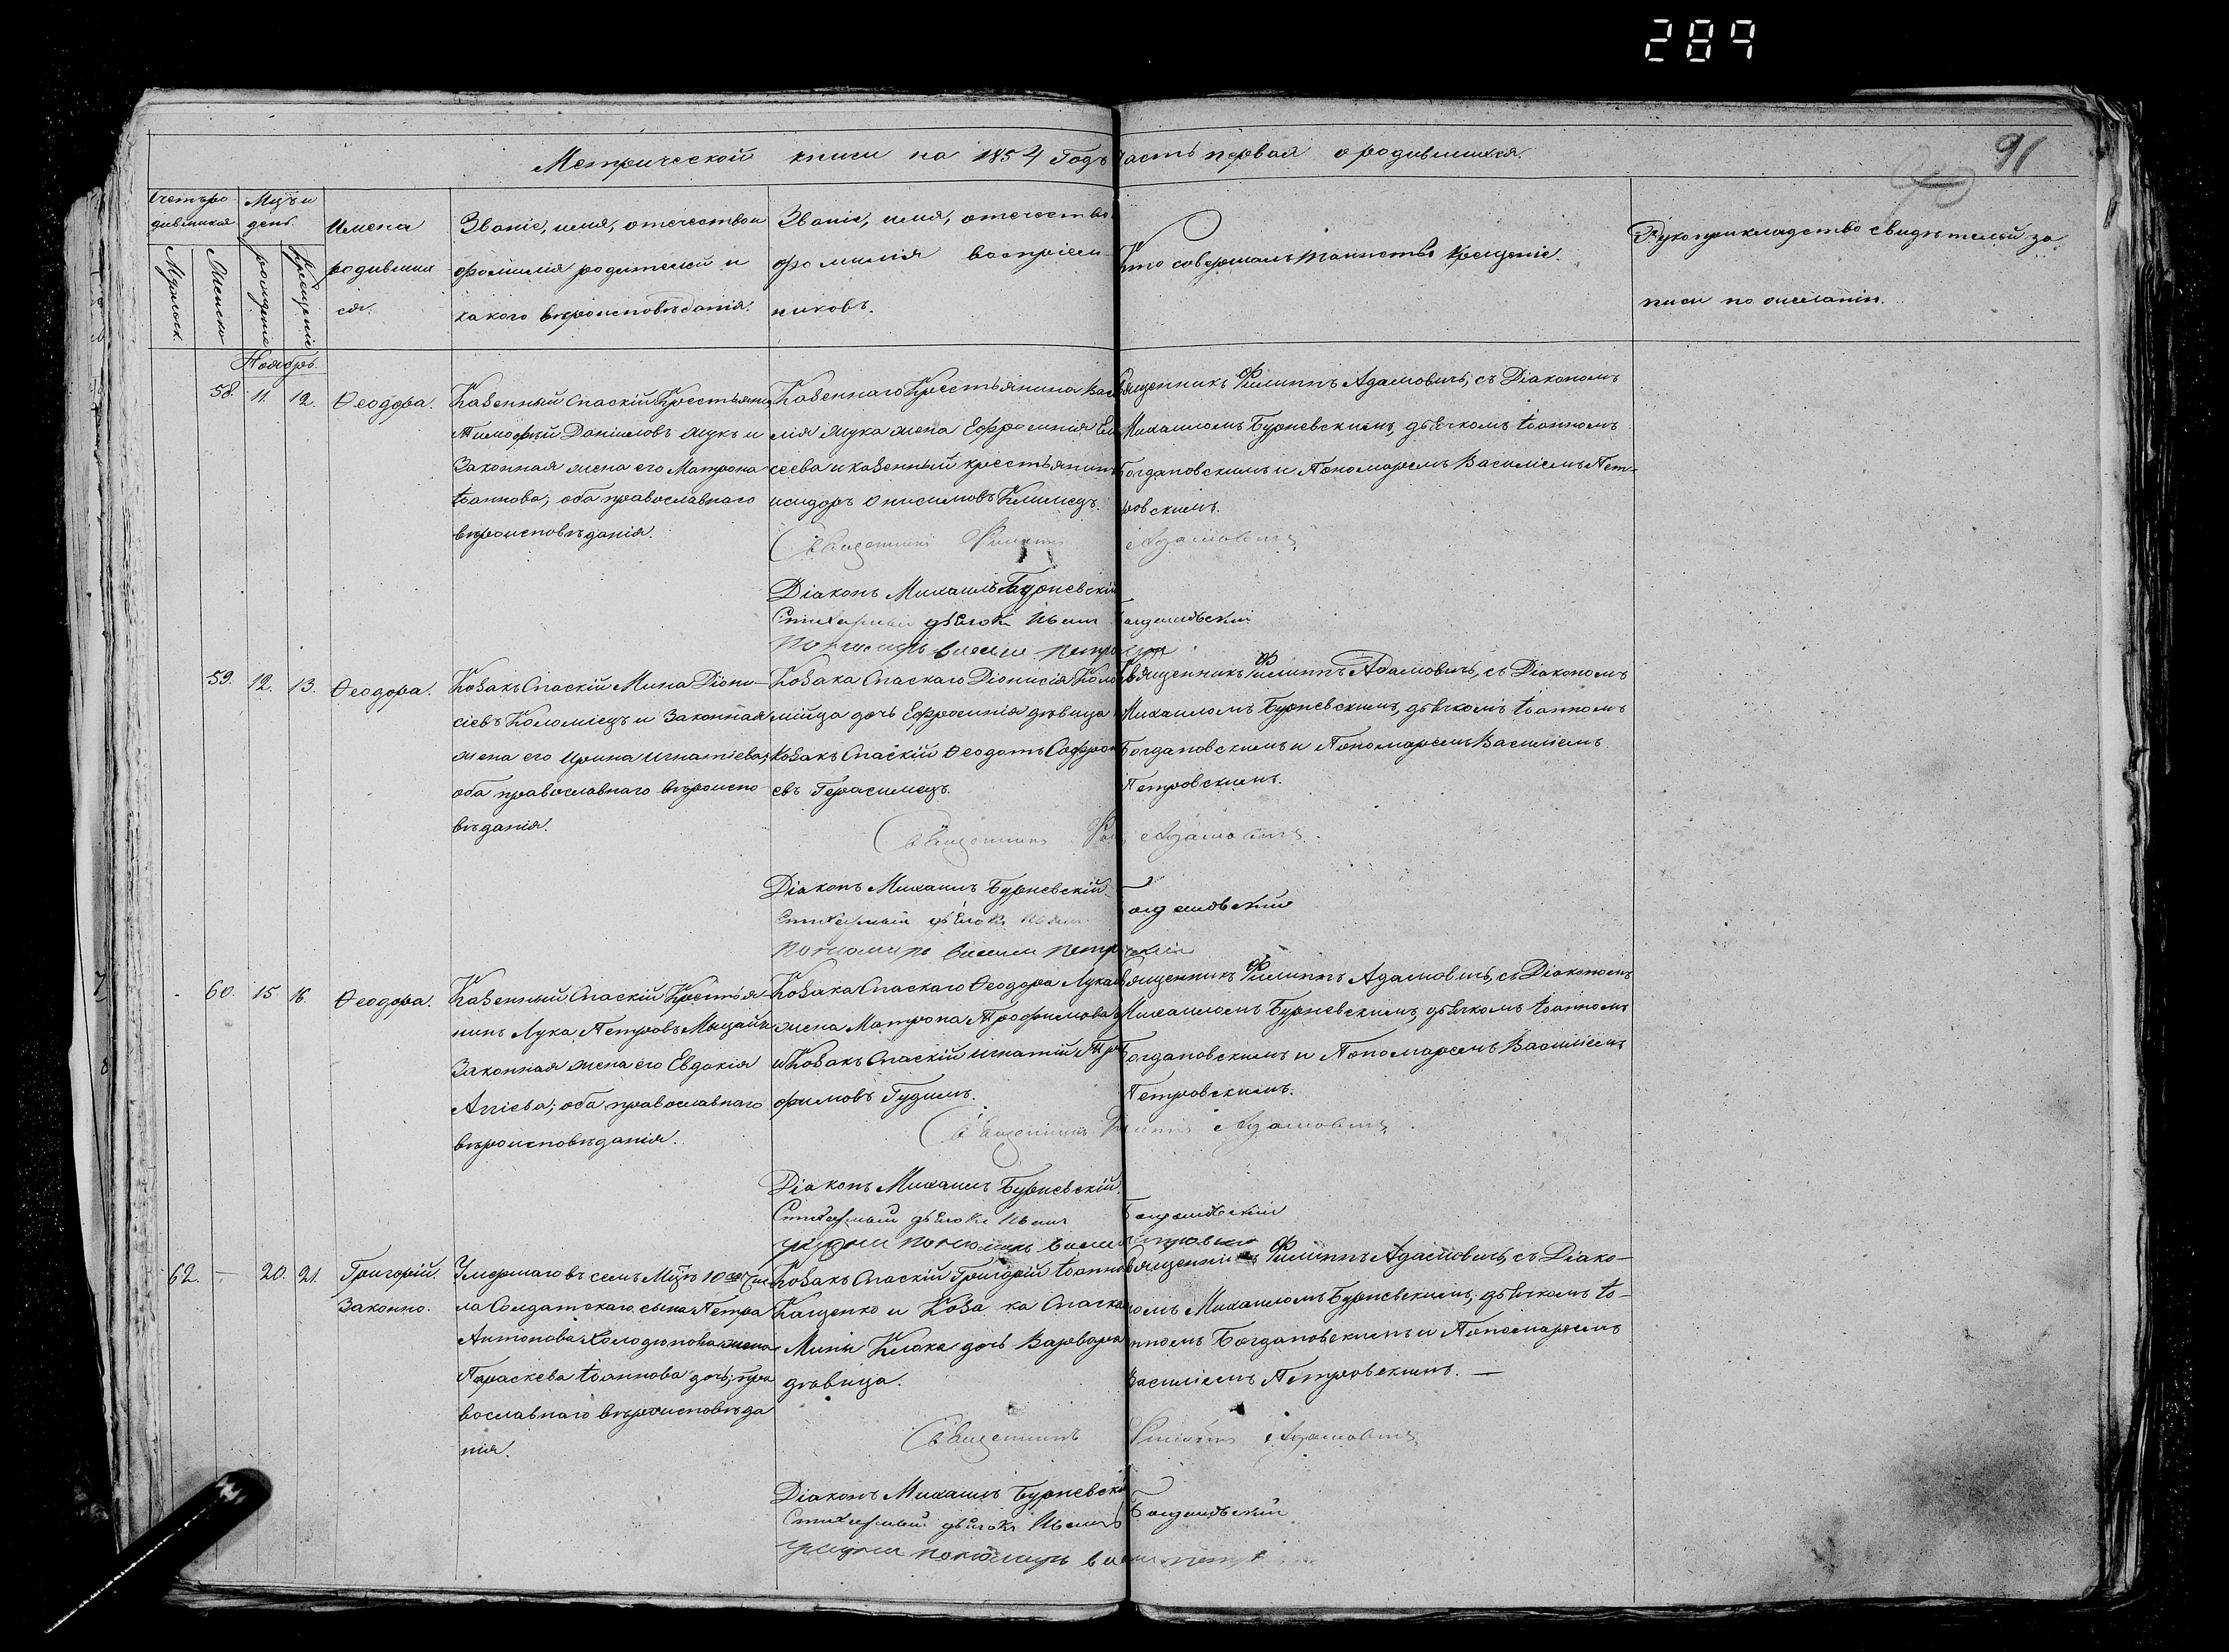 289
91
Метрической книги на 1854 Годъ часть первая о родившихся.
Счетъ родившихся
Мцъ и день.
Мужеск.
Женско
рожденіе
крещеніе
Имена
родивших
ся.
Званіе, имя, отечество и
фамилія родителей и
какого вѣроисповѣданія.
Званіе, имя, отечество
фамилія воспріем-
никовъ.
Кто совершалъ таинство крещенія.
Рукоприкладство свидѣтелей за-
писи по желанію.
Ноябрь
58. 11. 12. Ѳеодора.
Казенный Спаскій Крестьянинъ
Тимофѣй Даніиловъ Жукъ и
Законная жена его Матрона
Іоаннова; оба православнаго
вѣроисповѣданія.
Казеннаго Крестьянина Васи
лія Жука жена Ефросинія Ели
сеева и казенный крестьянинъ
исидоръ Онисимовъ Климецъ.
Священникъ Филиппъ Адамовичъ, съ Діакономъ
Михаиломъ Бурневскимъ, дьячкомъ Іоанномъ
Богдановскимъ и Пономаремъ Василіемъ Пет-
ровскимъ.
Священникъ Филиппъ Адамовичъ
Діаконъ Михаилъ Бурневскій
Стихарный дьячокъ Иванъ Богдановскій
Пономарь Василий Петровский
59. 12. 13. Ѳеодора.
Козакъ Спаскій Мина Діони-
сіевъ Коломіецъ и Законная
жена его Ирина Игнатіева;
оба православнаго вѣроиспо
вѣданія.
Козака Спаскаго Діонисія Коло
мійца дочь Ефросинія дѣвица
Козакъ Спаскій Ѳеодотъ Софрон
евъ Герасимецъ.
Священникъ Филиппъ Адамовичъ, съ Діакономъ
Михаиломъ Бурневскимъ, дьячкомъ Іоанномъ
Богдановскимъ и Пономаремъ Василіемъ
Петровскимъ.
Священникъ Адамовичъ.
Діаконъ Михаилъ Бурневскій
Стихарный дьячокъ Иванъ Богдановский
Пономарь Василий Петровский
60. 15 16. Ѳеодора.
Казенный Спаскій Крестья
нинъ Лука Петровъ
Законная жена его Евдокія
оба православнаго
вѣроисповѣданія.
Козака Спаскаго Ѳеодора
жена Матрона Трофимова
и Козакъ Спаскій Игнатій Тро
фимовъ Гудимъ.
Священникъ Филиппъ Адамовичъ, съ Діакономъ
Михаиломъ Бурневскимъ, дьячкомъ Іоанномъ
Богдановскимъ и Пономаремъ Василіемъ
Петровскимъ.
Священникъ Филиппъ Адамовичъ
Діаконъ Михаилъ Бурневскій.
Стихарный дьячокъ Иванъ Богдановский
пономарь Василий Петровский
62. — 20. 21. Григорій.
Законно.
Умершаго въ семъ Мцѣ 10го Чис
ла Солдатскаго сына Петра
Антонова жена
Параскева Іоаннова дочь; пра
вославнаго вѣроисповѣда
нія.
Козакъ Спаскій Григорій Іоаннов
Кащенко и Козака Спаска
Мины Клюка дочь Варвара
дѣвица.
Священникъ Филиппъ Адамовичъ, съ Діако-
номъ Михаиломъ Бурневскимъ, дьячкомъ Іо-
анномъ Богдановскимъ и Пономаремъ
Василіемъ Петровскимъ. —
Священникъ Филиппъ Адамовичъ
Діаконъ Михаилъ Бурневскій
Стихарный дьячокъ Иванъ Богдановский
пономарь